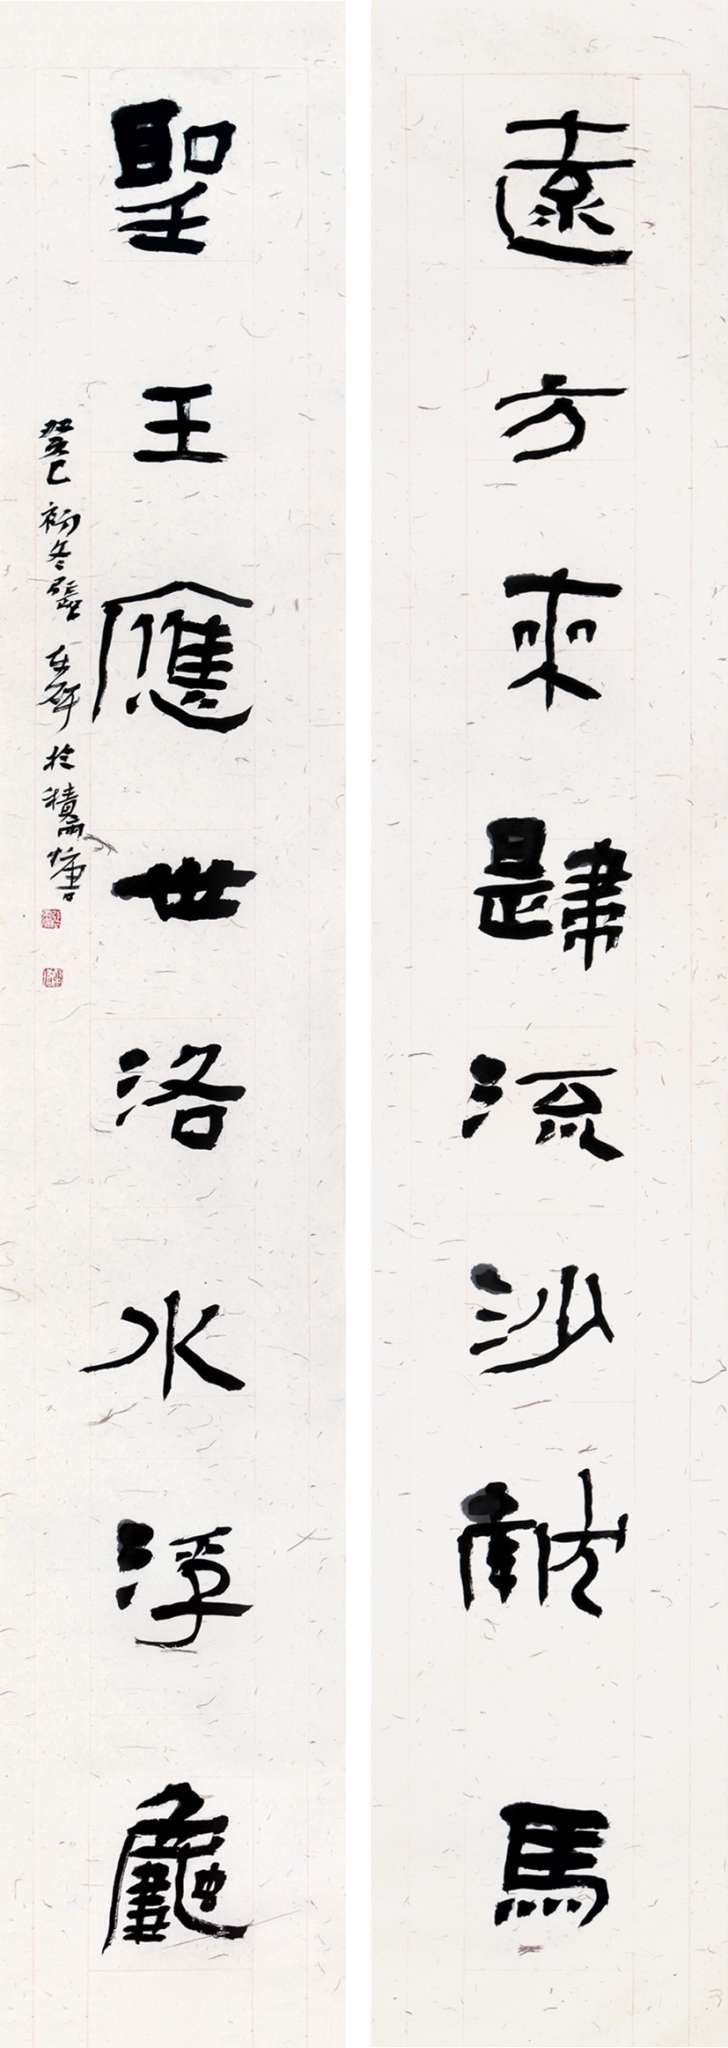 遠方來歸流沙献馬
聖王應世洛水浮龜
癸巳初冬張於積雨書